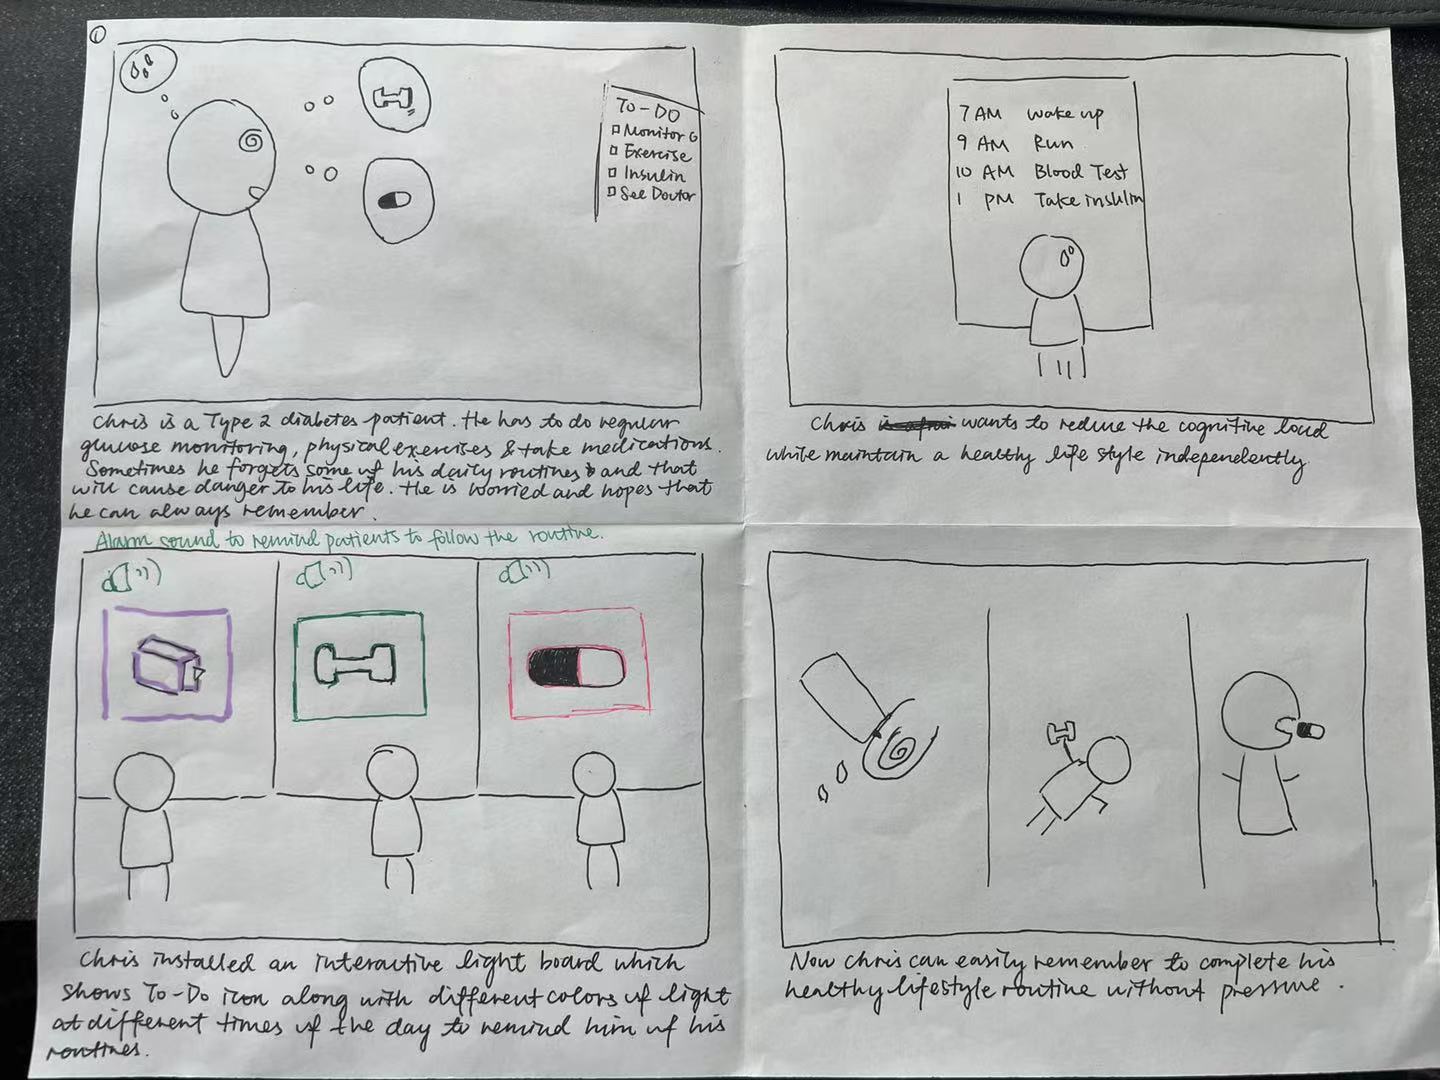 ①
To-DO
Monitor G
Exercise
Insulin
See Doctor
Chris is a Type 2 diabetes patient. He has to do regular
glucose monitoring, physical exercises & take medications.
Sometimes he forgets some of his daily routines and that
will cause danger to his life. He is worried and hopes that
he can always remember.
7 AM Wake up
9 AM Run
10 AM Blood Test
1 PM Take insulin
Chris wants to reduce the cognitive load
while maintain a healthy life style independently
Alarm sound to remind patients to follow the routine.
Chris installed an interactive light board which
shows To-Do icon along with different colors of light
at different times of the day to remind him of his
routines.
Now Chris can easily remember to complete his
healthy lifestyle routine without pressure.